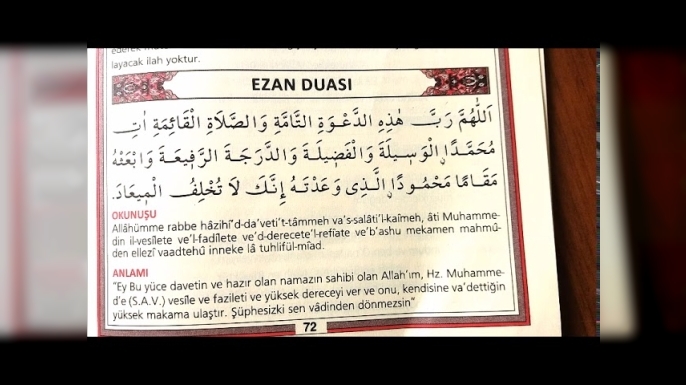 layacak ilah yoktur.
EZAN DUASI
اَللّٰهُمَّ رَبَّ هٰذِهِ الدَّعْوَةِ التَّامَّةِ وَالصَّلَاةِ الْقَائِمَةِ اٰتِ
مُحَمَّدًا ۨالْوَسِيلَةَ وَالْفَضِيلَةَ وَالدَّرَجَةَ الرَّفِيعَةَ وَابْعَثْهُ
مَقَامًا مَحْمُودًا ۨالَّذِى وَعَدْتَهُ اِنَّكَ لَا تُخْلِفُ الْمِيعَادَ.
OKUNUŞU
Allâhümme rabbe hâzihi'd-da'veti't-tâmmeh va's-salâti'l-kaîmeh, âti Muhamme-
din il-vesîlete ve'l-fadîlete ve'd-derecete'l-refîate ve'b'ashu mekamen mahmû-
den ellezî vaadtehû inneke lâ tuhlifül-mîad.
ANLAMI
"Ey Bu yüce davetin ve hazır olan namazın sahibi olan Allah'ım, Hz. Muhamme-
d'e (S.A.V.) vesîle ve fazileti ve yüksek dereceyi ver ve onu, kendisine va'dettiğin
yüksek makama ulaştır. Şüphesizki sen vâdinden dönmezsin"
72